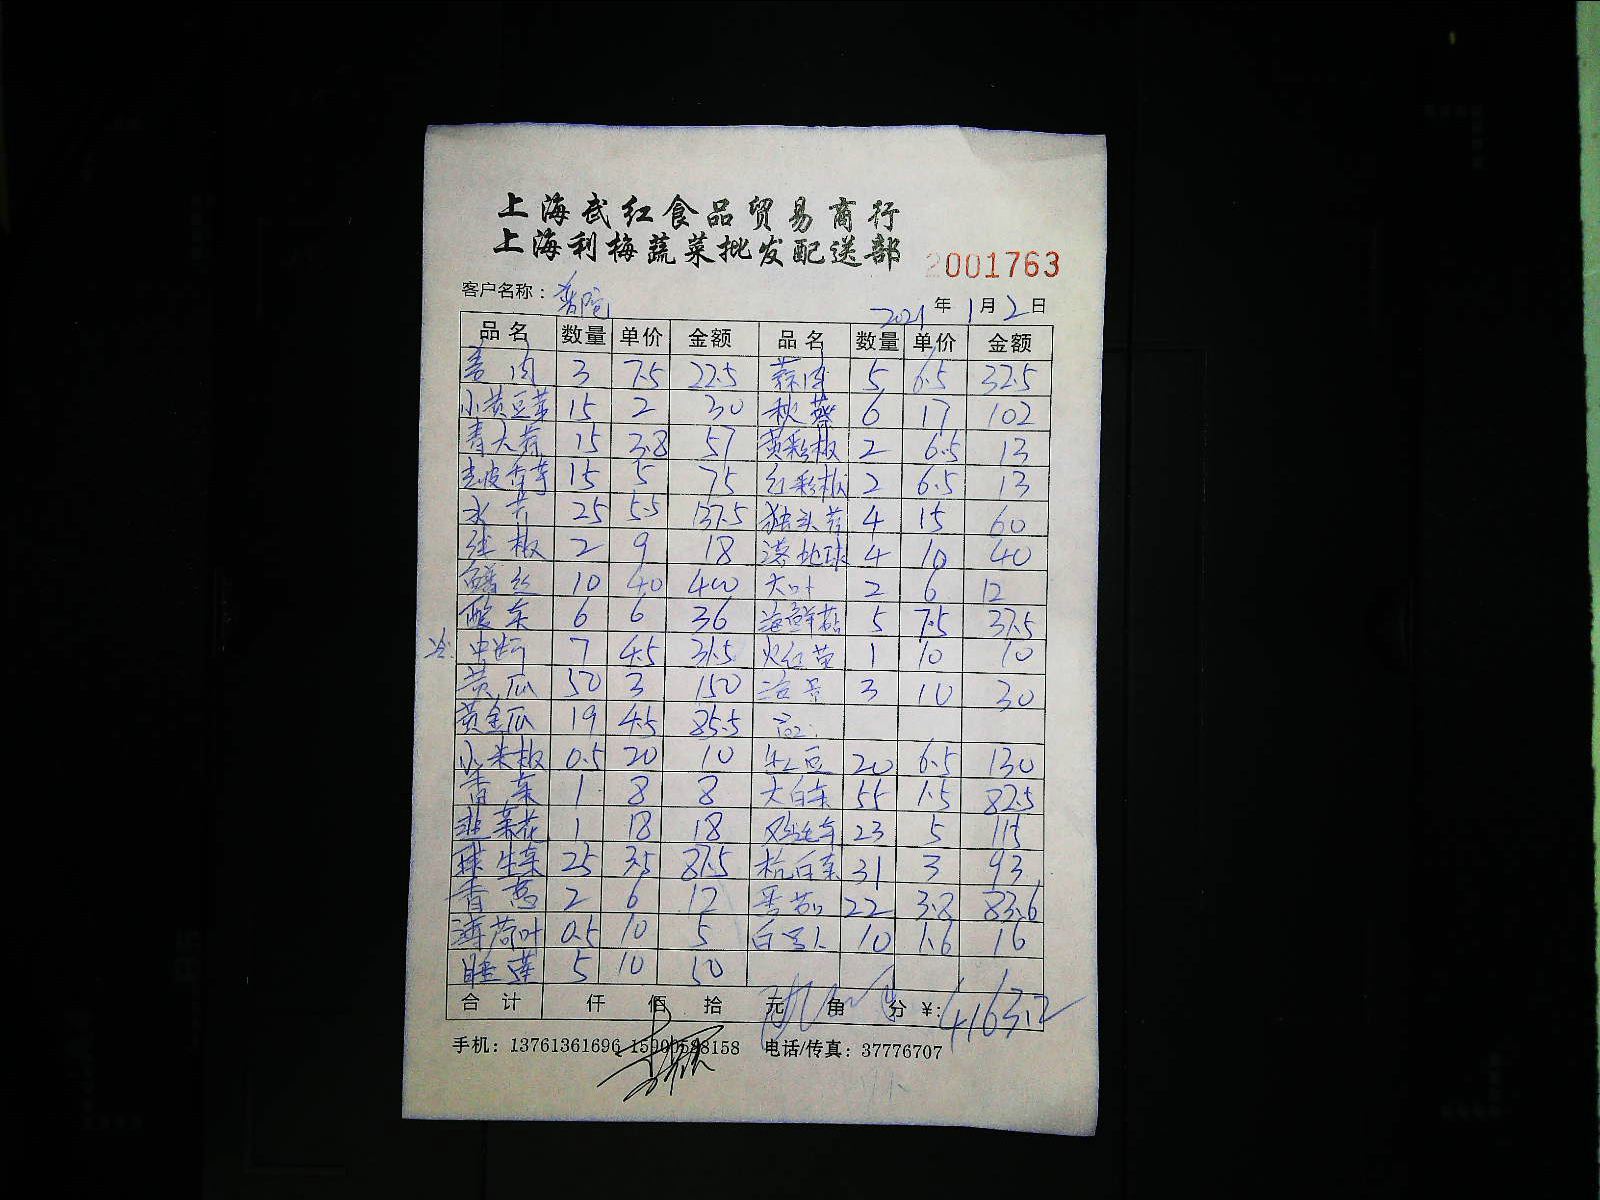 上海武红食品贸易商行
上海利梅蔬菜批发配送部
2001763
客户名称：
2021年1月2日
品名 数量 单价 金额 品名 数量 单价 金额
3 7.5 22.5 蒜肉 5 6.5 32.5
小黄豆芽 15 2 30 秋葵 6 17 102
青大蒜 15 3.8 57 黄彩椒 2 6.5 13
去皮香芋 15 5 75 红彩椒 2 6.5 13
水芹 25 5.5 137.5 独头蒜 4 15 60
红椒 2 9 18 10 40
鳝丝 10 40 400 大叶 2 6 12
酸菜 6 6 36 海鲜菇 5 7.5 37.5
7 4.5 31.5 1 10 10
黄瓜 50 3 150 3 10 30
黄金瓜 19 4.5 85.5
小米椒 0.5 20 10 红豆 20 6.5 130
香菜 1 8 8 大白菜 55 1.5 82.5
韭菜花 1 18 18 23 5 115
球生菜 25 3.5 87.5 杭白菜 31 3 93
香葱 2 6 12 番茄 22 3.8 83.6
薄荷叶 0.5 10 5 白萝卜 10 1.6 16
睡莲 5 10 50
合计 仟 佰 拾 元 角 分 ¥：4163.2
手机：13761361696 15900588158 电话/传真：37776707